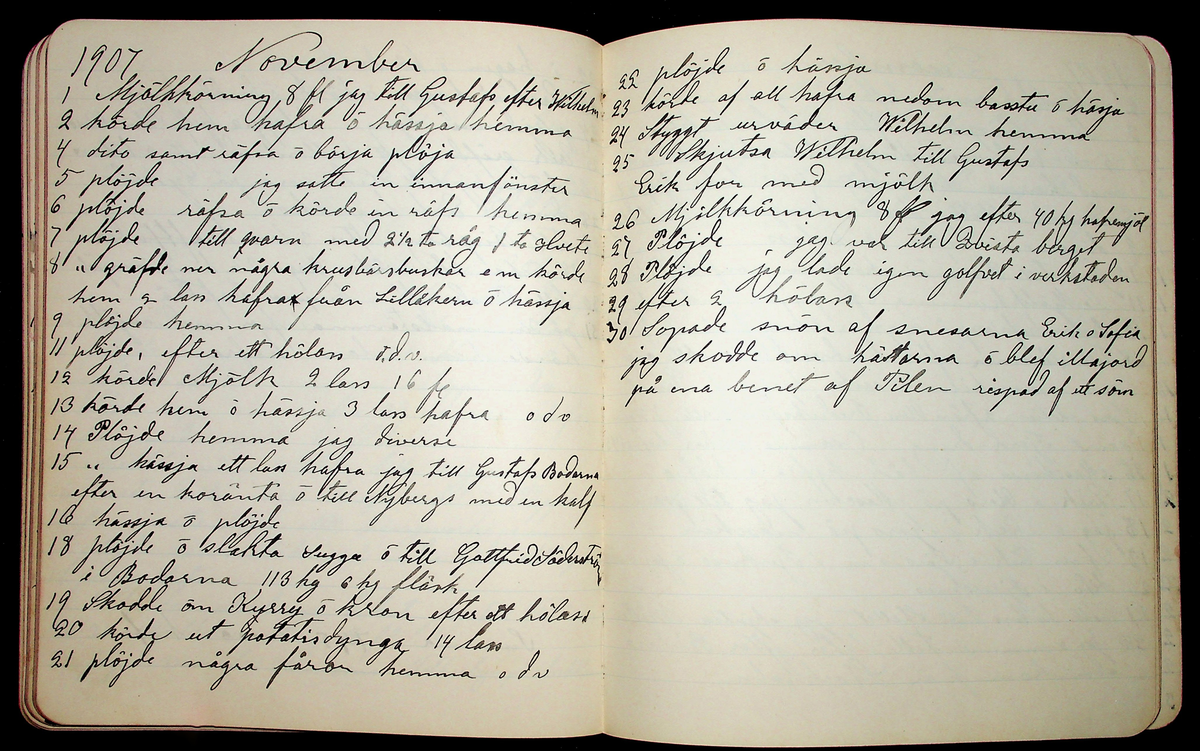 1907 November
1 Mjölkkörning 8 fl jag till Gustafs efter Wilhelm
2 körde hem hafra ō hässja hemma
4 dito samt räfsa ō börja plöja
5 plöjde jag satte in innanfönster
6 plöjde räfsa ō körde in räfs hemma
7 plöjde till qvarn med 2½ to råg 1 to Hvete
8 " gräfde ner några krusbärsbuskar em körde
hem 2 lass hafra från Lillåkern ō hässja
9 plöjde hemma
11 plöjde, efter ett hölass o.d.v.
12 körde Mjölk 2 lass 16 fl
13 körde hem ō hässja 3 lass hafra o d v
14 Plöjde hemma jag diverse
15 " hässja ett lass hafra jag till Gustafs Bodarna
efter en koränta ō till Nybergs med en kalf
16 hässja ō plöjde
18 plöjde ō slakta Sugga ō till Gottfrid Söderström
i Bodarna 113 kg 6 kg fläsk
19 Skodde om Kyrry ō kron efter ett hölass
20 körde ut potatisdynga 14 lass
21 plöjde några fåror hemma o d v
22 plöjde ō hässja
23 körde af all hafra nedom basstu ō hässja
24 Styggt urväder Wilhelm hemma
25 Skjutsa Wilhelm till Gustafs
Erik for med mjölk
26 Mjölkkörning 8 fl jag efter 40 kg hafremjöl
27 Plöjde jag var till Qvista berget
28 Plöjde jag lade igen golfvet i verkstaden
29 efter 2 hölass
30 Sopade snön af snesarna Erik o Sofia
jag skodde om hästarna ō blef illa jord
på ena benet af Plen rispad af ett söm